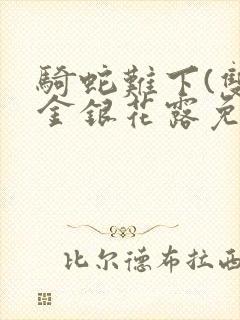 騎蛇難下(雙
金銀花露免
比尔德布拉西